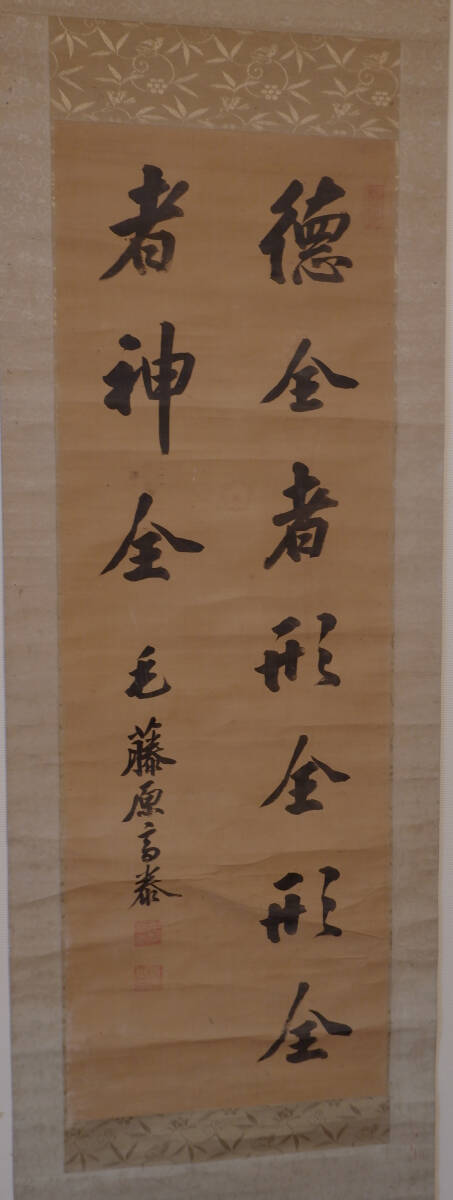 德全者形全形全
者神全 毛藤原高泰